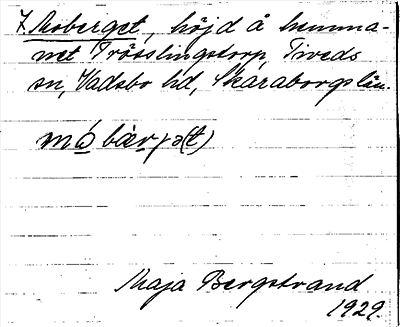 7. Moberget, höjd å hemma-
net Trösslingstorp, Tiveds
sn, Vadsbo hd, Skaraborgs län.
mó bærjə(t)
Maja Bergstrand
1929.